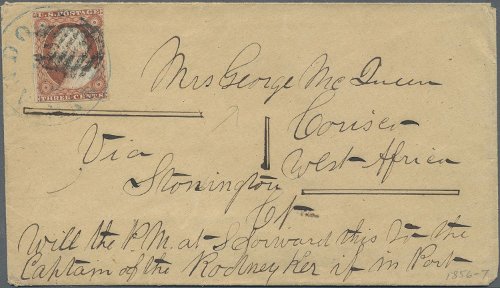 U.S. POSTAGE
THREE CENTS
Mrs George McQueen
Corisco
Via
West Africa
Stonington
Ct
Will the P.M. at S forward this to the
Captain of the Rodney Ker if in Port
1856-7